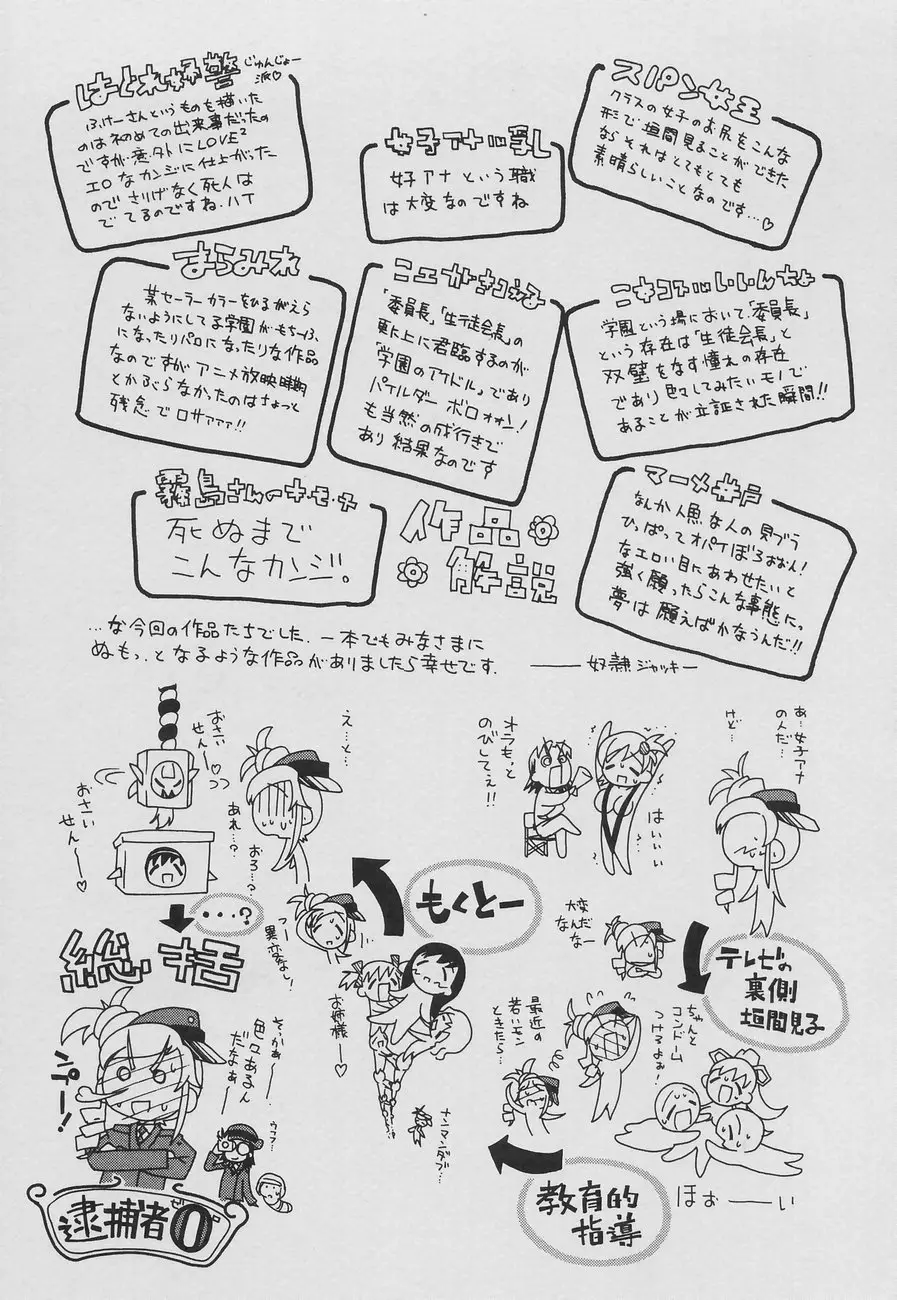 作品
解説
スパン女王
クラスの女子のお尻をこんな
形で垣間見ることができた
ならそれはとてもとても
素晴らしいことなのです…♡
女子アナル乳し
女子アナという職
は大変なのですね
はぐれ好警
じゅんじょー
派♡
ふけーさんというものを描いた
のは初めての出来事だったの
ですが意外にLOVE²
エロなカンジに仕上がった
のでさりげなく死人は
でてるのですね.ハイ
ニキコスルいいんちょ
学園という場において、「委員長」
という存在は「生徒会長」と
双璧をなす憧れの存在
であり色々してみたいモノで
あることが立証された瞬間!!
コエがきこえる
「委員長」「生徒会長」の
更に上に君臨するのが
「学園のアイドル」であり
パイルダー ボロォォン!
も当然の成行きで
あり結果なのです
まらみれ
某セーラーカラーをひるがえら
ないようにしてる学園がもちーふ
になったりパロになったりな作品
なのですがアニメ放映時期
とかぶらなかったのはちょっと
残念でロサァァァ!!
マーメ井戸
なんか人魚な人の貝ブラ
ひっぱってオパイぼろおおん!
なエロい目にあわせたいと
強く願ったらこんな事態にっ
夢は願えばかなうんだ!!
霧島さんのキ・モ・チ
死ぬまで
こんなカンジ。
…な今回の作品たちでした. 一本でもみなさまに
ぬもっ.となるような作品がありましたら幸せです.
――奴隷ジャッキー
あ…女子アナ
のんだ…
けど…
オラもっと
のびしてぇ!!
はいいいい
大変だ
なんなー
テレビの
裏側
垣間見子
ちゃんと
コンドーム
つけるよぉ!
ほぉーーい
教育的
指導
最近の
若いモン
ときたら…
もくとー
つー
異変なし!
お姉様ー♡
ナンマンダブ…
え…と…
あれ…?
おろ…?
おさい
せんー♡
おさい
せんー♡
…?
総括
そっかぁー
色々あるん
だなぁー
ウフフ…
パァー!
逮捕者0
ゼロ